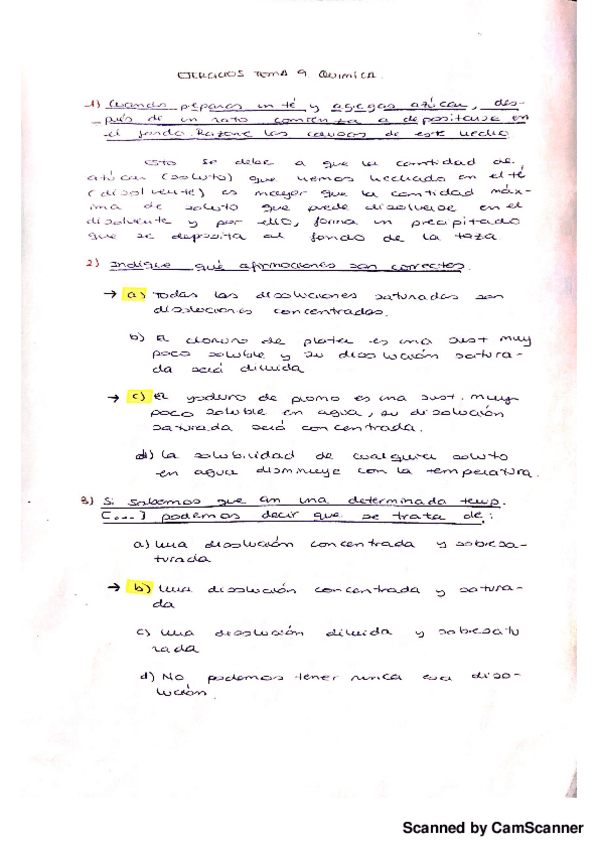 EJERCICIOS TEMA 9. QUIMICA.
1) Cuando pepares un té y agegas azúcar, des-
pués de un rato comienza a depositarse en
el fondo. Razone las causas de este hecho
Esto se debe a que la cantidad de
azúcar (soluto) que hemos hechado en el té
(disolvente) es mayor que la cantidad máx-
ima de soluto que puede disolverse en el
disolvente y por ello, forma un precipitado
que se deposita al fondo de la taza
2) Indique qué afirmaciones son correctas.
→ a) Todas las disoluciones saturadas son
disoluciones concentradas.
b) El cloruro de plata es una sust muy
poco soluble y su disolución satura-
da será diluida
→ c) El yoduro de plomo es una sust. muy
poco soluble en agua, su disolución
saturada será concentrada.
d) La solubilidad de cualquier soluto
en agua disminuye con la temperatura.
3) Si sabemos que an una determinada temp.
(...) podemos decir que se trata de:
a) Una disolución concentrada y sobresa-
turada
→ b) Una disolución concentrada y satura-
da
c) Una disolución diluida y sobresatu
rada
d) No podemos tener nunca esa diso-
lución.
Scanned by CamScanner